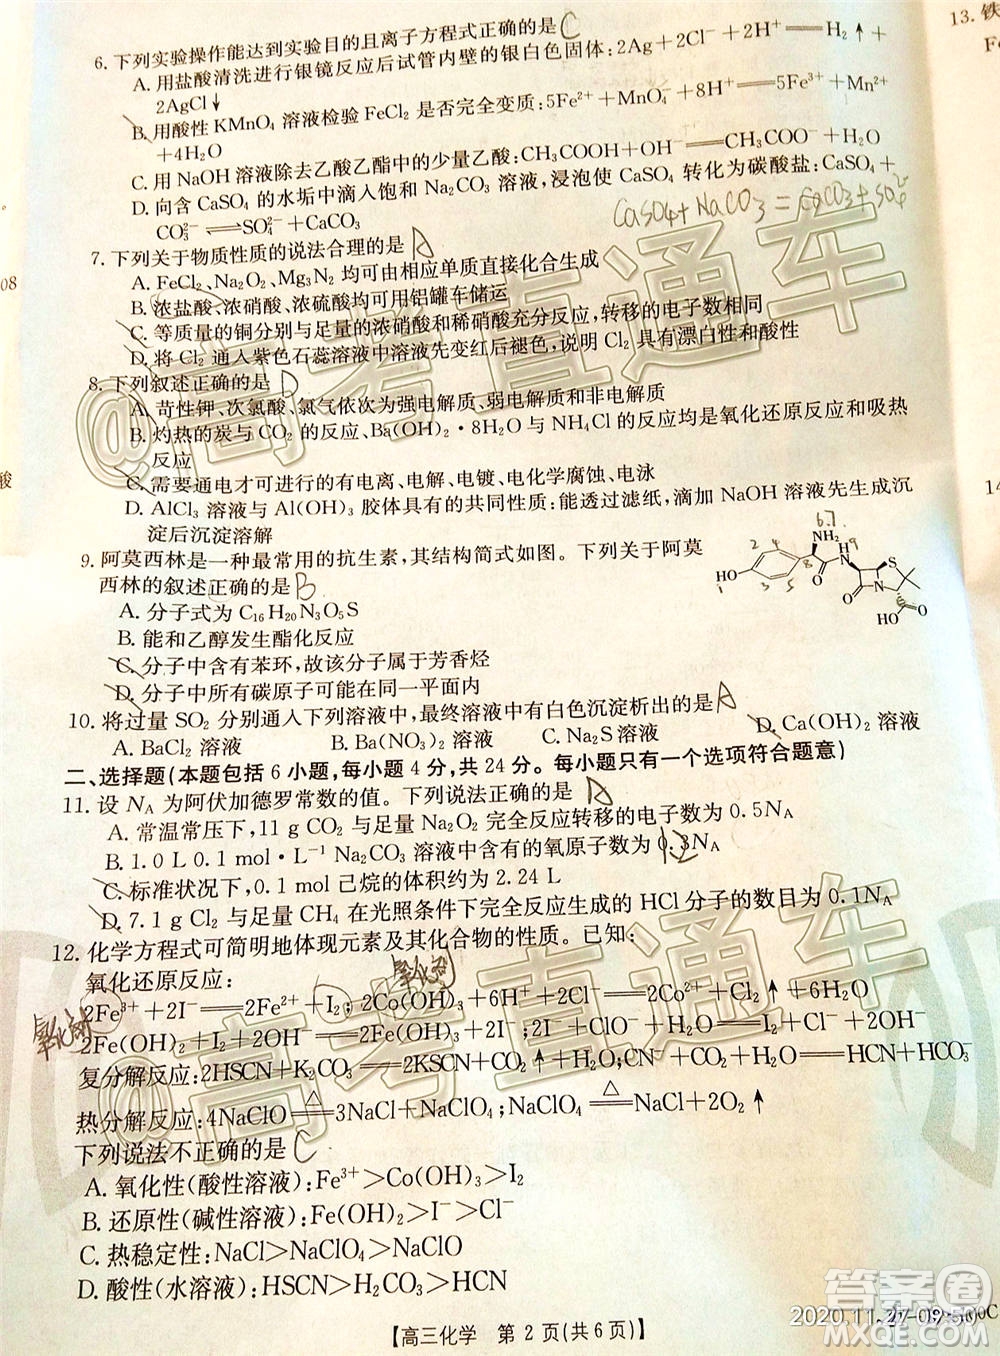 13. 铁
6. 下列实验操作能达到实验目的且离子方程式正确的是 C
A. 用盐酸清洗进行银镜反应后试管内壁的银白色固体:2Ag+2Cl⁻+2H⁺══H₂↑+
2AgCl↓
B. 用酸性 KMnO₄ 溶液检验 FeCl₂ 是否完全变质:5Fe²⁺+MnO₄⁻+8H⁺══5Fe³⁺+Mn²⁺
+4H₂O
C. 用 NaOH 溶液除去乙酸乙酯中的少量乙酸:CH₃COOH+OH⁻══CH₃COO⁻+H₂O
D. 向含 CaSO₄ 的水垢中滴入饱和 Na₂CO₃ 溶液,浸泡使 CaSO₄ 转化为碳酸盐:CaSO₄+
CO₃²⁻⇌SO₄²⁻+CaCO₃
CaSO₄+NaCO₃=CaCO₃+SO₄²⁻
7. 下列关于物质性质的说法合理的是 A
A. FeCl₂、Na₂O₂、Mg₃N₂ 均可由相应单质直接化合生成
B. 浓盐酸、浓硝酸、浓硫酸均可用铝罐车储运
C. 等质量的铜分别与足量的浓硝酸和稀硝酸充分反应,转移的电子数相同
D. 将 Cl₂ 通入紫色石蕊溶液中溶液先变红后褪色,说明 Cl₂ 具有漂白性和酸性
8. 下列叙述正确的是 D
A. 苛性钾、次氯酸、氯气依次为强电解质、弱电解质和非电解质
B. 灼热的炭与 CO₂ 的反应、Ba(OH)₂·8H₂O 与 NH₄Cl 的反应均是氧化还原反应和吸热
反应
C. 需要通电才可进行的有电离、电解、电镀、电化学腐蚀、电泳
D. AlCl₃ 溶液与 Al(OH)₃ 胶体具有的共同性质:能透过滤纸,滴加 NaOH 溶液先生成沉
淀后沉淀溶解
9. 阿莫西林是一种最常用的抗生素,其结构简式如图。下列关于阿莫
西林的叙述正确的是 B
NH₂
H
N
S
HO
O
N
O
HO
O
A. 分子式为 C₁₆H₂₀N₃O₅S
B. 能和乙醇发生酯化反应
C. 分子中含有苯环,故该分子属于芳香烃
D. 分子中所有碳原子可能在同一平面内
10. 将过量 SO₂ 分别通入下列溶液中,最终溶液中有白色沉淀析出的是 A
A. BaCl₂ 溶液 B. Ba(NO₃)₂ 溶液 C. Na₂S 溶液 D. Ca(OH)₂ 溶液
二、选择题(本题包括 6 小题,每小题 4 分,共 24 分。每小题只有一个选项符合题意)
11. 设 Nᴀ 为阿伏加德罗常数的值。下列说法正确的是 A
A. 常温常压下,11 g CO₂ 与足量 Na₂O₂ 完全反应转移的电子数为 0.5Nᴀ
B. 1.0 L 0.1 mol·L⁻¹ Na₂CO₃ 溶液中含有的氧原子数为 0.3Nᴀ
C. 标准状况下,0.1 mol 己烷的体积约为 2.24 L
D. 7.1 g Cl₂ 与足量 CH₄ 在光照条件下完全反应生成的 HCl 分子的数目为 0.1Nᴀ
12. 化学方程式可简明地体现元素及其化合物的性质。已知:
氧化还原反应:
氧化剂
2Fe³⁺+2I⁻══2Fe²⁺+I₂;2Co(OH)₃+6H⁺+2Cl⁻══2Co²⁺+Cl₂↑+6H₂O
2Fe(OH)₂+I₂+2OH⁻══2Fe(OH)₃+2I⁻;2I⁻+ClO⁻+H₂O══I₂+Cl⁻+2OH⁻
复分解反应:2HSCN+K₂CO₃══2KSCN+CO₂↑+H₂O;CN⁻+CO₂+H₂O══HCN+HCO₃⁻
热分解反应:4NaClO══△3NaCl+NaClO₄;NaClO₄══△NaCl+2O₂↑
下列说法不正确的是 C
A. 氧化性(酸性溶液):Fe³⁺>Co(OH)₃>I₂
B. 还原性(碱性溶液):Fe(OH)₂>I⁻>Cl⁻
C. 热稳定性:NaCl>NaClO₄>NaClO
D. 酸性(水溶液):HSCN>H₂CO₃>HCN
【高三化学 第 2 页(共 6 页)】
@高考直通车
@高考直通车
答案圈
MXQE.COM